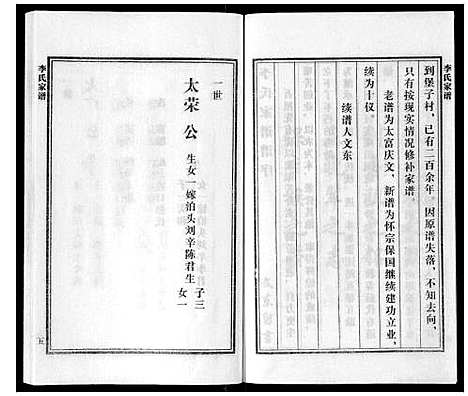 李氏家谱
到堡子村，已有二百余年，因原谱失落，不知去向，
只有按现实情况修补家谱。
老谱为太富庆文，新谱为怀宗保国继续建功立业，
续为十仪。
续谱人文东
一世
太荣公
生女一嫁泊头刘辛陈君生
子三
女一
李氏家谱
五